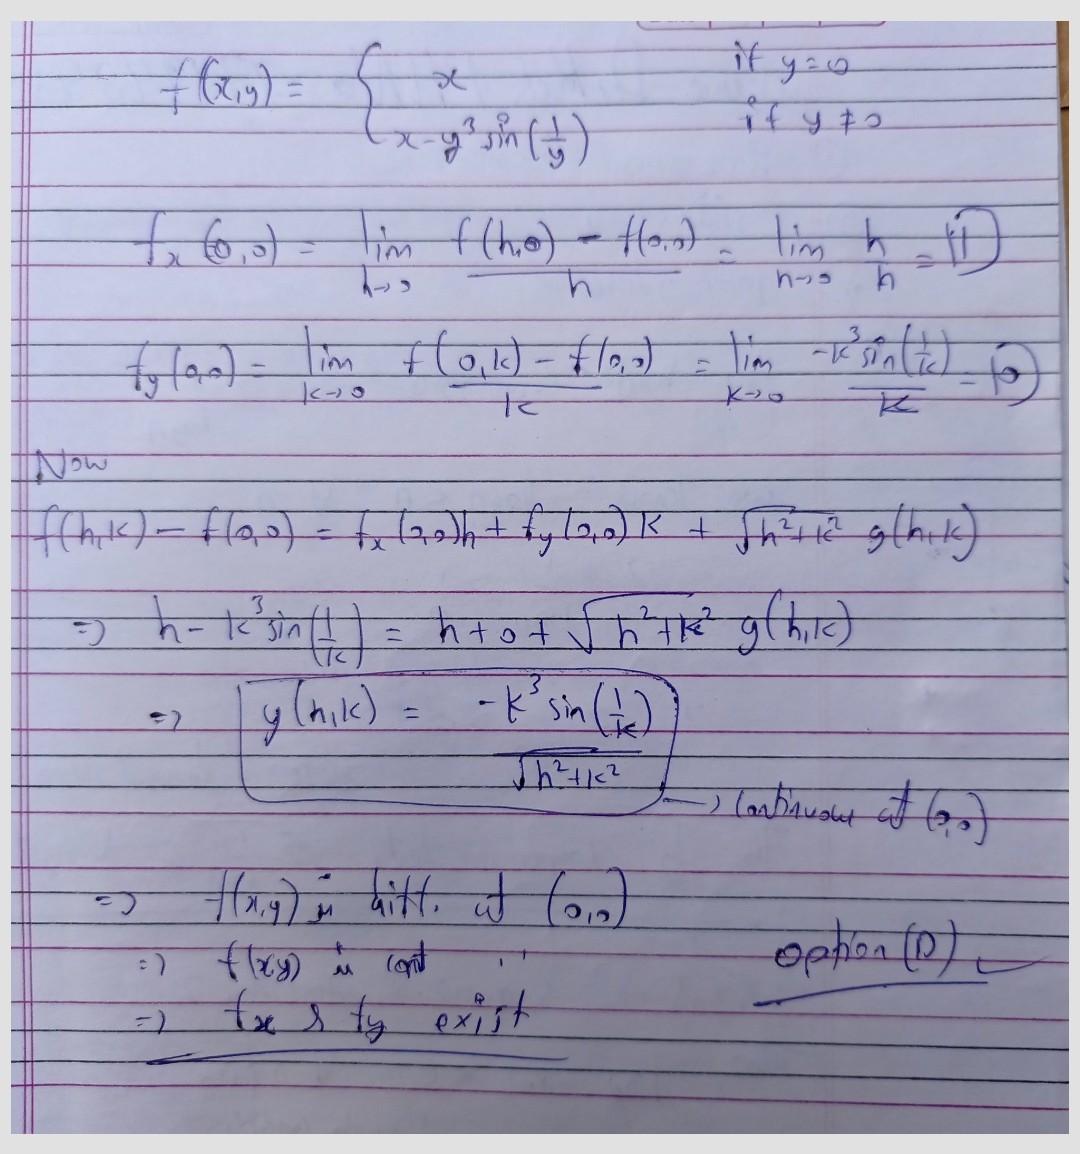 f(x,y) = { x if y=0
x-y³ sin(1/y) if y≠0
fx(0,0) = lim h→0 f(h,0) - f(0,0) / h = lim h→0 h/h = 1
fy(0,0) = lim k→0 f(0,k) - f(0,0) / k = lim k→0 -k³ sin(1/k) / k = 0
Now
f(h,k) - f(0,0) = fx(0,0)h + fy(0,0)k + √h²+k² g(h,k)
=> h - k³ sin(1/k) = h+0+ √h²+k² g(h,k)
=> g(h,k) = -k³ sin(1/k) / √h²+k²
→ continuous at (0,0)
=> f(x,y) is diff. at (0,0)
=> f(xy) is cont "
option (D) ✓
=> fx & fy exist